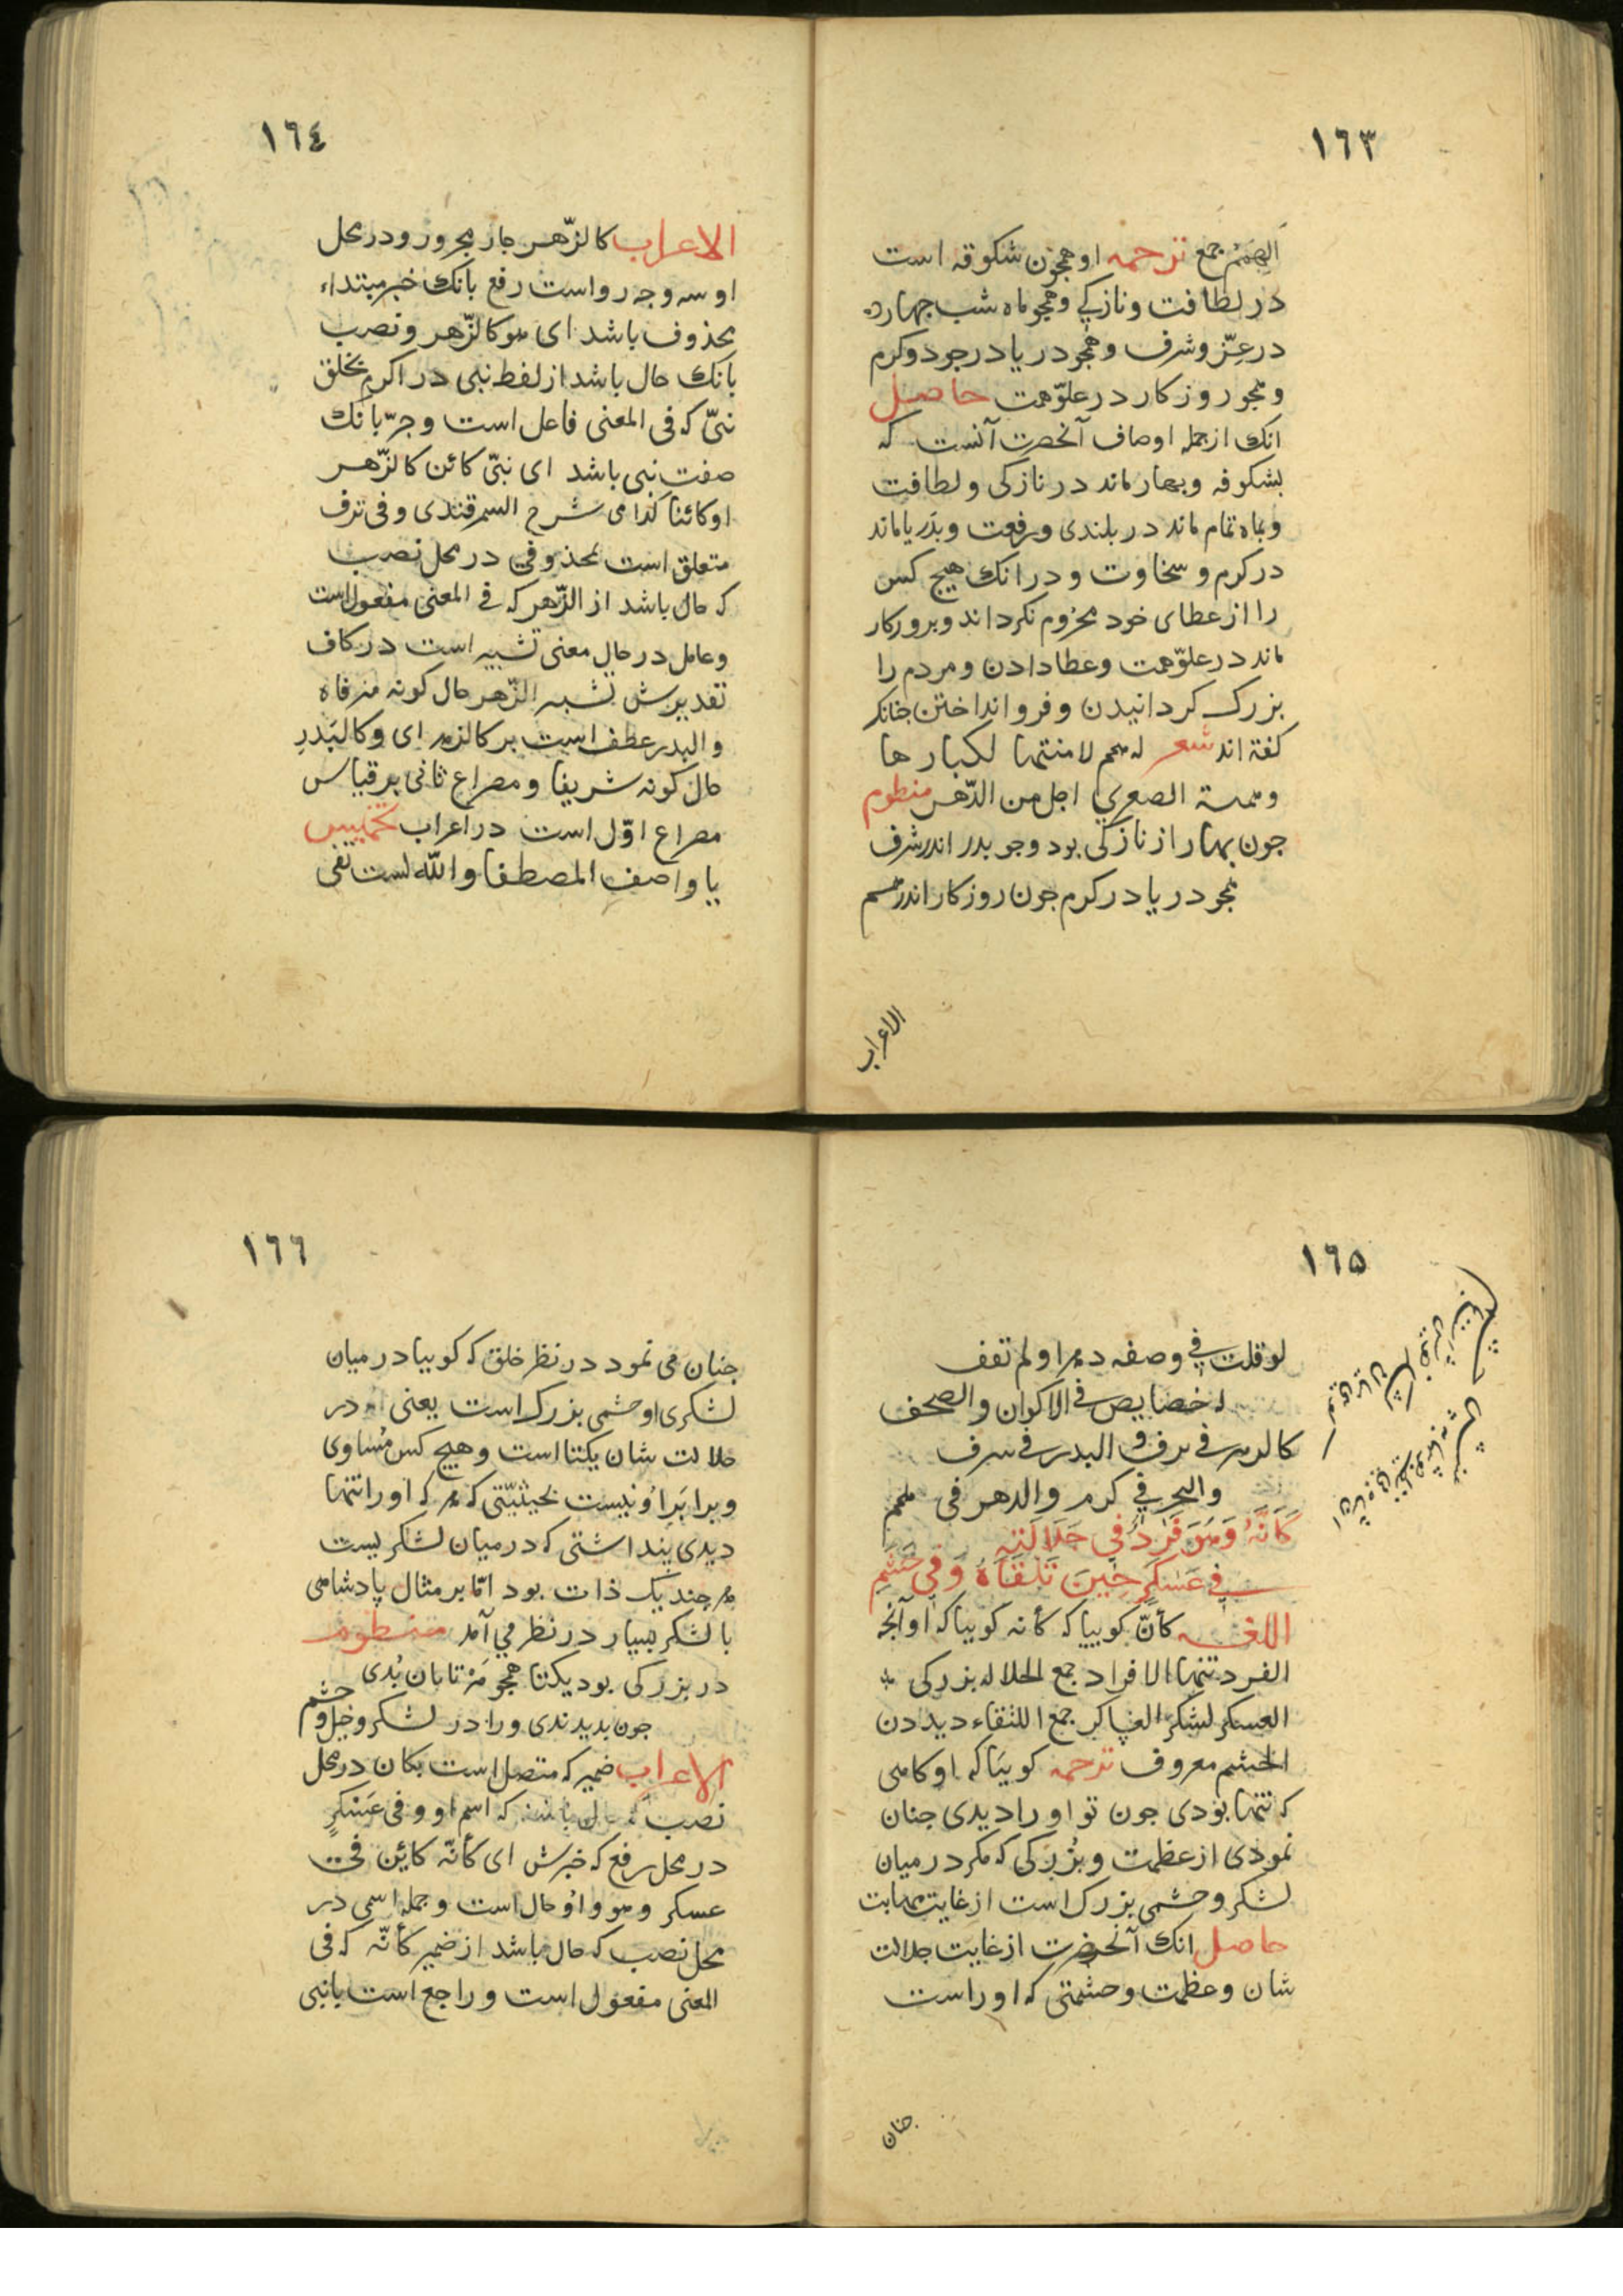 ١٦٣
الهمم جمع ترجمه او همچون شکوفه است
در لطافت و نازکی و همچو ماه شب چهارده
در عزّ و شرف و همچو دریا در جود و کرم
و همچو روزکار در علوّ همت حاصل
انک از جمله اوصاف آنحضرت آنست که
بشکوفه و بهار ماند در نازکی و لطافت
و بماه تمام ماند در بلندی و رفعت و بدریا ماند
در کرم و سخاوت و در انک هیچ کس
را از عطای خود محروم نکرداند و بروزکار
ماند در علوّ همت و عطا دادن و مردم را
بزرک کردانیدن و فرو انداختن چنانکه
کفته اند شعر له همم لا منتها لکبارها
و همته الصغری اجل من الدّهر منظوم
چون بهار از نازکی بود و چو بدر اندر شرف
همچو دریا در کرم چون روزکار اندر همم
الاعراب
١٦٤
الاعراب کالزّهر جار مجرور و در محل
او سه وجه رواست رفع بانک خبر مبتداء
محذوف باشد ای هو کالزّهر و نصب
بانک حال باشد از لفظ نبی در اکرم بخلق
نبیّ که فی المعنی فاعل است و جرّ بانک
صفت نبی باشد ای نبیّ کائن کالزّهر
او کائنا کذا فی شرح السمرقندی و فی ترف
متعلق است بمحذوفی در محل نصب
که حال باشد از الزّهر که فی المعنی مفعول است
و عامل در حال معنی تشبیه است در کاف
تقدیرش تشبه الزّهر حال کونه مترفاه
و البدر عطف است بر کالزهر ای و کالبَدرِ
حال کونه شریفا و مصراع ثانی بر قیاس
مصراع اوّل است در اعراب تخمیس
یا واصف المصطفا والله لست تفی
١٦٥
لو قلت فی وصفه دهرا و لم تقف
له خصایص فی الاکوان والصحف
کالزهر فی ترف و البدر فی شرف
والبحر فی کرم والدهر فی همم
کَأَنَّهُ وَهُوَ فَرْدٌ فِی جَلَالَتِهِ
فِی عَسْکَرٍ حِینَ تَلْقَاهُ وَفِی حَشَمِ
اللغه کأنّ کوییا که کأنه کوییا که او آنجه
الفرد تنها الافراد جمع الجلاله بزرکی
العسکر لشکر العساکر جمع اللقاء دیدن
الحشم معروف ترجمه کوییا که او کاهی
که تنها بودی چون تو او را دیدی چنان
نمودی از عظمت و بزُرکی که مکر در میان
لشکر و حشمی بزرک است از غایت مهابت
حاصل انک آنحضرت از غایت جلالت
شان و عظمت و حشمتی که او راست
چنان
١٦٦
چنان می نمود در نظر خلق که کوییا در میان
لشکری و حشمی بزرک است یعنی او در
جلالت شان یکتا است و هیچ کس مُساوی
و برابرِ او نیست بحیثیّتی که هر که او را تنها
دیدی پنداشتی که در میان لشکریست
هر چند یک ذات بود امّا بر مثال پادشاهی
با لشکر بسیار در نظر می آمد منظوم
در بزرکی بود یکتا همچو مَهْ تابان بُدی
چون بدیدندی ورا در لشکر و خیل و حشم
الاعراب ضمیر که متصل است بکان در محل
نصب که اسم او و فی عَسْکرٍ
در محل رفع که خبرش ای کأنّه کائِن فی
عسکر و هو واو حال است و جمله اسمی در
محل نصب که حال باشد از ضمیر کأنّه که فی
المعنی مفعول است و راجع است بانبی